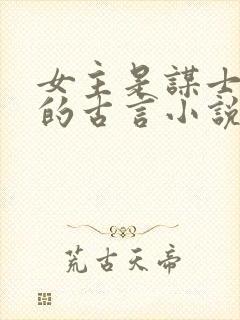 女主是謀士
的古言小說
荒古天帝